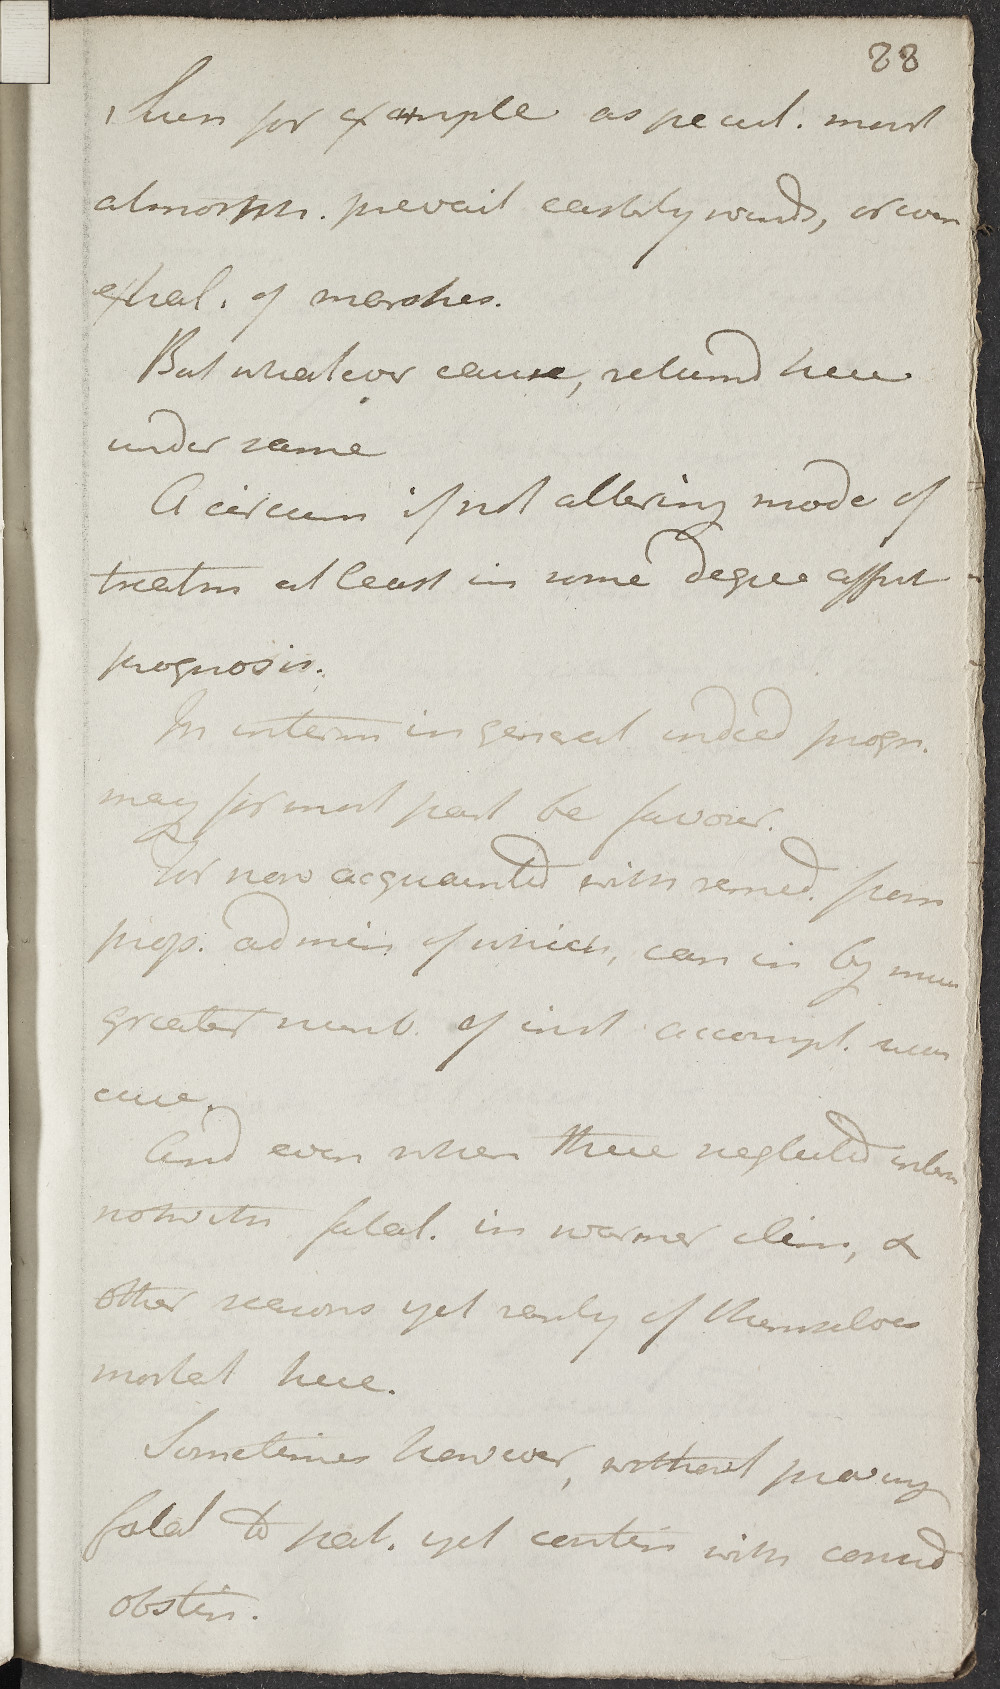 88
Such for example as pecul. moist
atmosph. prevail easterly winds, or even
exhal. of marshes.
But whatever cause, returnd here
under same
A circum if not altering mode of
treatm at least in some degree affect
prognosis.
In interm in general indeed progn.
may for most part be favour.
For now acquainted with remed. from
prop. admin of which, can in by much
greater numb. of inst accompl.
cure.
And even when these neglected interm
notwith fatal. in warmer clim, &
other seasons yet rarely of themselves
mortal here.
Sometimes however, without proving
fatal to pat. yet contin with consid
obstin.